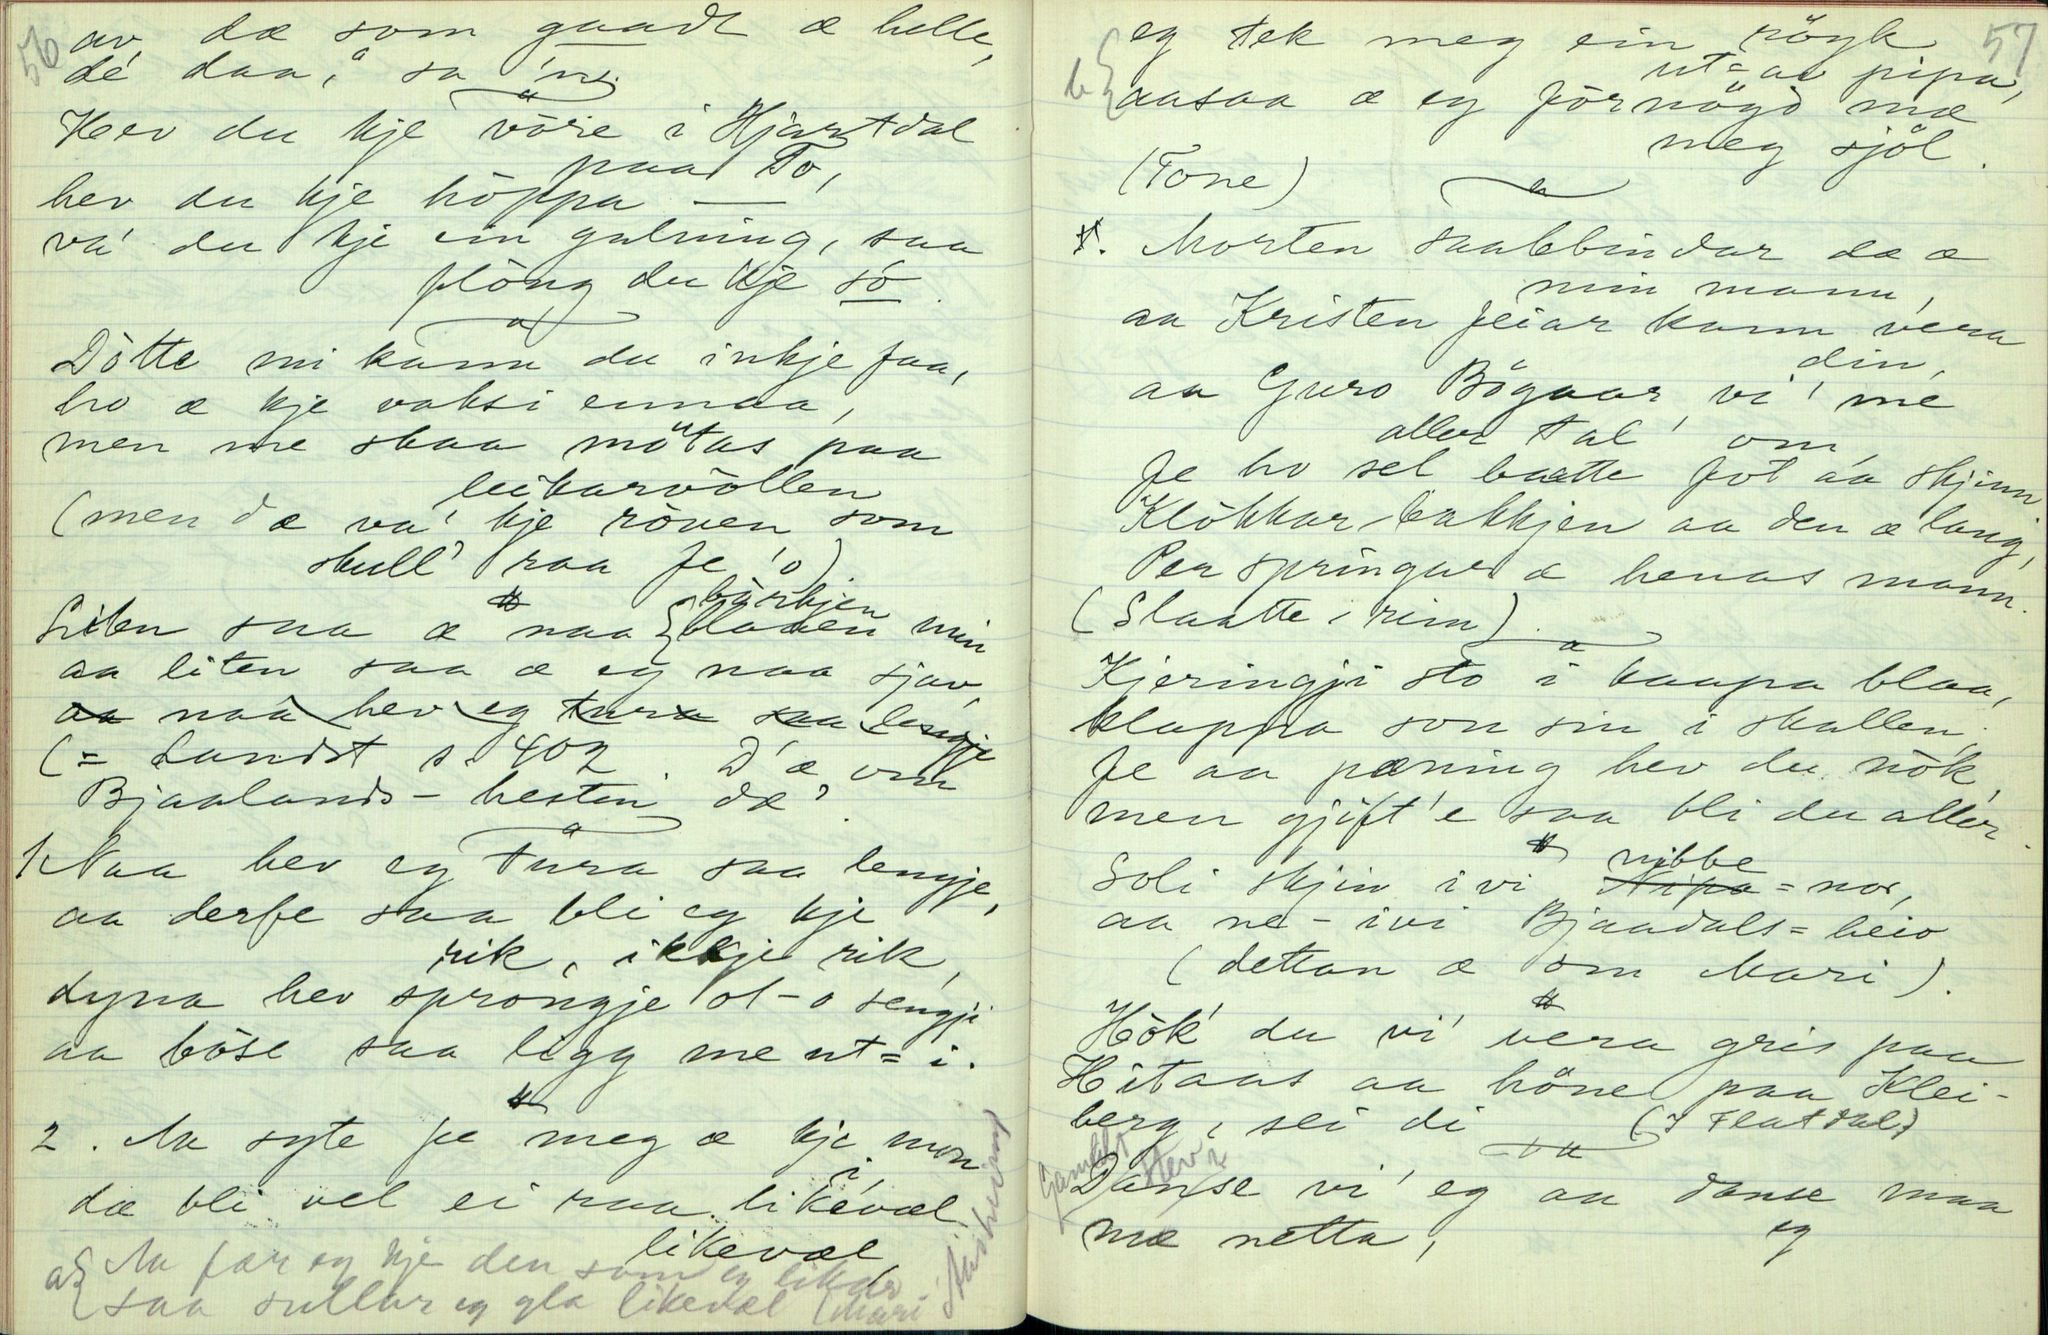 56
av, dæ som gaadt æ helle,
dé daa," sa 'n.
Hev du kje vöre i Hjartdal
paa To,
hev du kje höppa —
va' du kje ein galning, saa
flöng du kje so.
Dötte mi kann du inkje faa,
ho æ kje vaksi ennaa,
men me skaa mötas paa
leikarvöllen
(men dæ va' kje röven som
skull' raa fe 'o)
Liten saa æ naa { börkjen
blaaen min
aa liten saa æ eg naa sjav,
aa naa hev eg tura saa lengje
(= Landst s. 402. D'æ om
Bjaalands-hesten dæ).
1. Naa hev eg tura saa lengje,
aa derfe saa bli eg kje
rik, ikkje rik,
dyna hev sprongje ot-o sengji
aa böse saa ligg me ut=i.
2. Aa syte fe meg æ kje mon
i,
dæ bli vel ei raa likevæl
likevæl,
a { Aa fær eg kje den som eg likar
saa sullar eg gla likevæl (Mari
57
b { eg tek meg ein röyk
ut=av pipa,
aasaa æ eg förnögd mæ
meg sjöl.
(Tone)
Morten saalbindar dæ æ
min mann,
aa Kristen feiar kann vera
din,
aa Guro Bögaar vi' me
aller tal' om,
Fe ho sel baatte föt aa skjinn
Klökkar-bakkjen aa den æ lang,
Per springar æ henas mann.
(Slaatte i rim)
Kjeringji sto i kaapa blaa,
klappa son sin i skallen,
Fe aa pæning hev du nök,
men gjift'e saa bli du aller.
Soli skjin ivi nibbe
Nipa = nos,
aa ne-ivi Bjaadals=heio
(dettan æ om Mari).
Hök' du vi' vera gris paa
Hitaas aa höne paa Klei-
berg, sei di (I Flatdal)
Gamalt
stev
Danse vi' eg aa danse maa
eg
mæ netta,